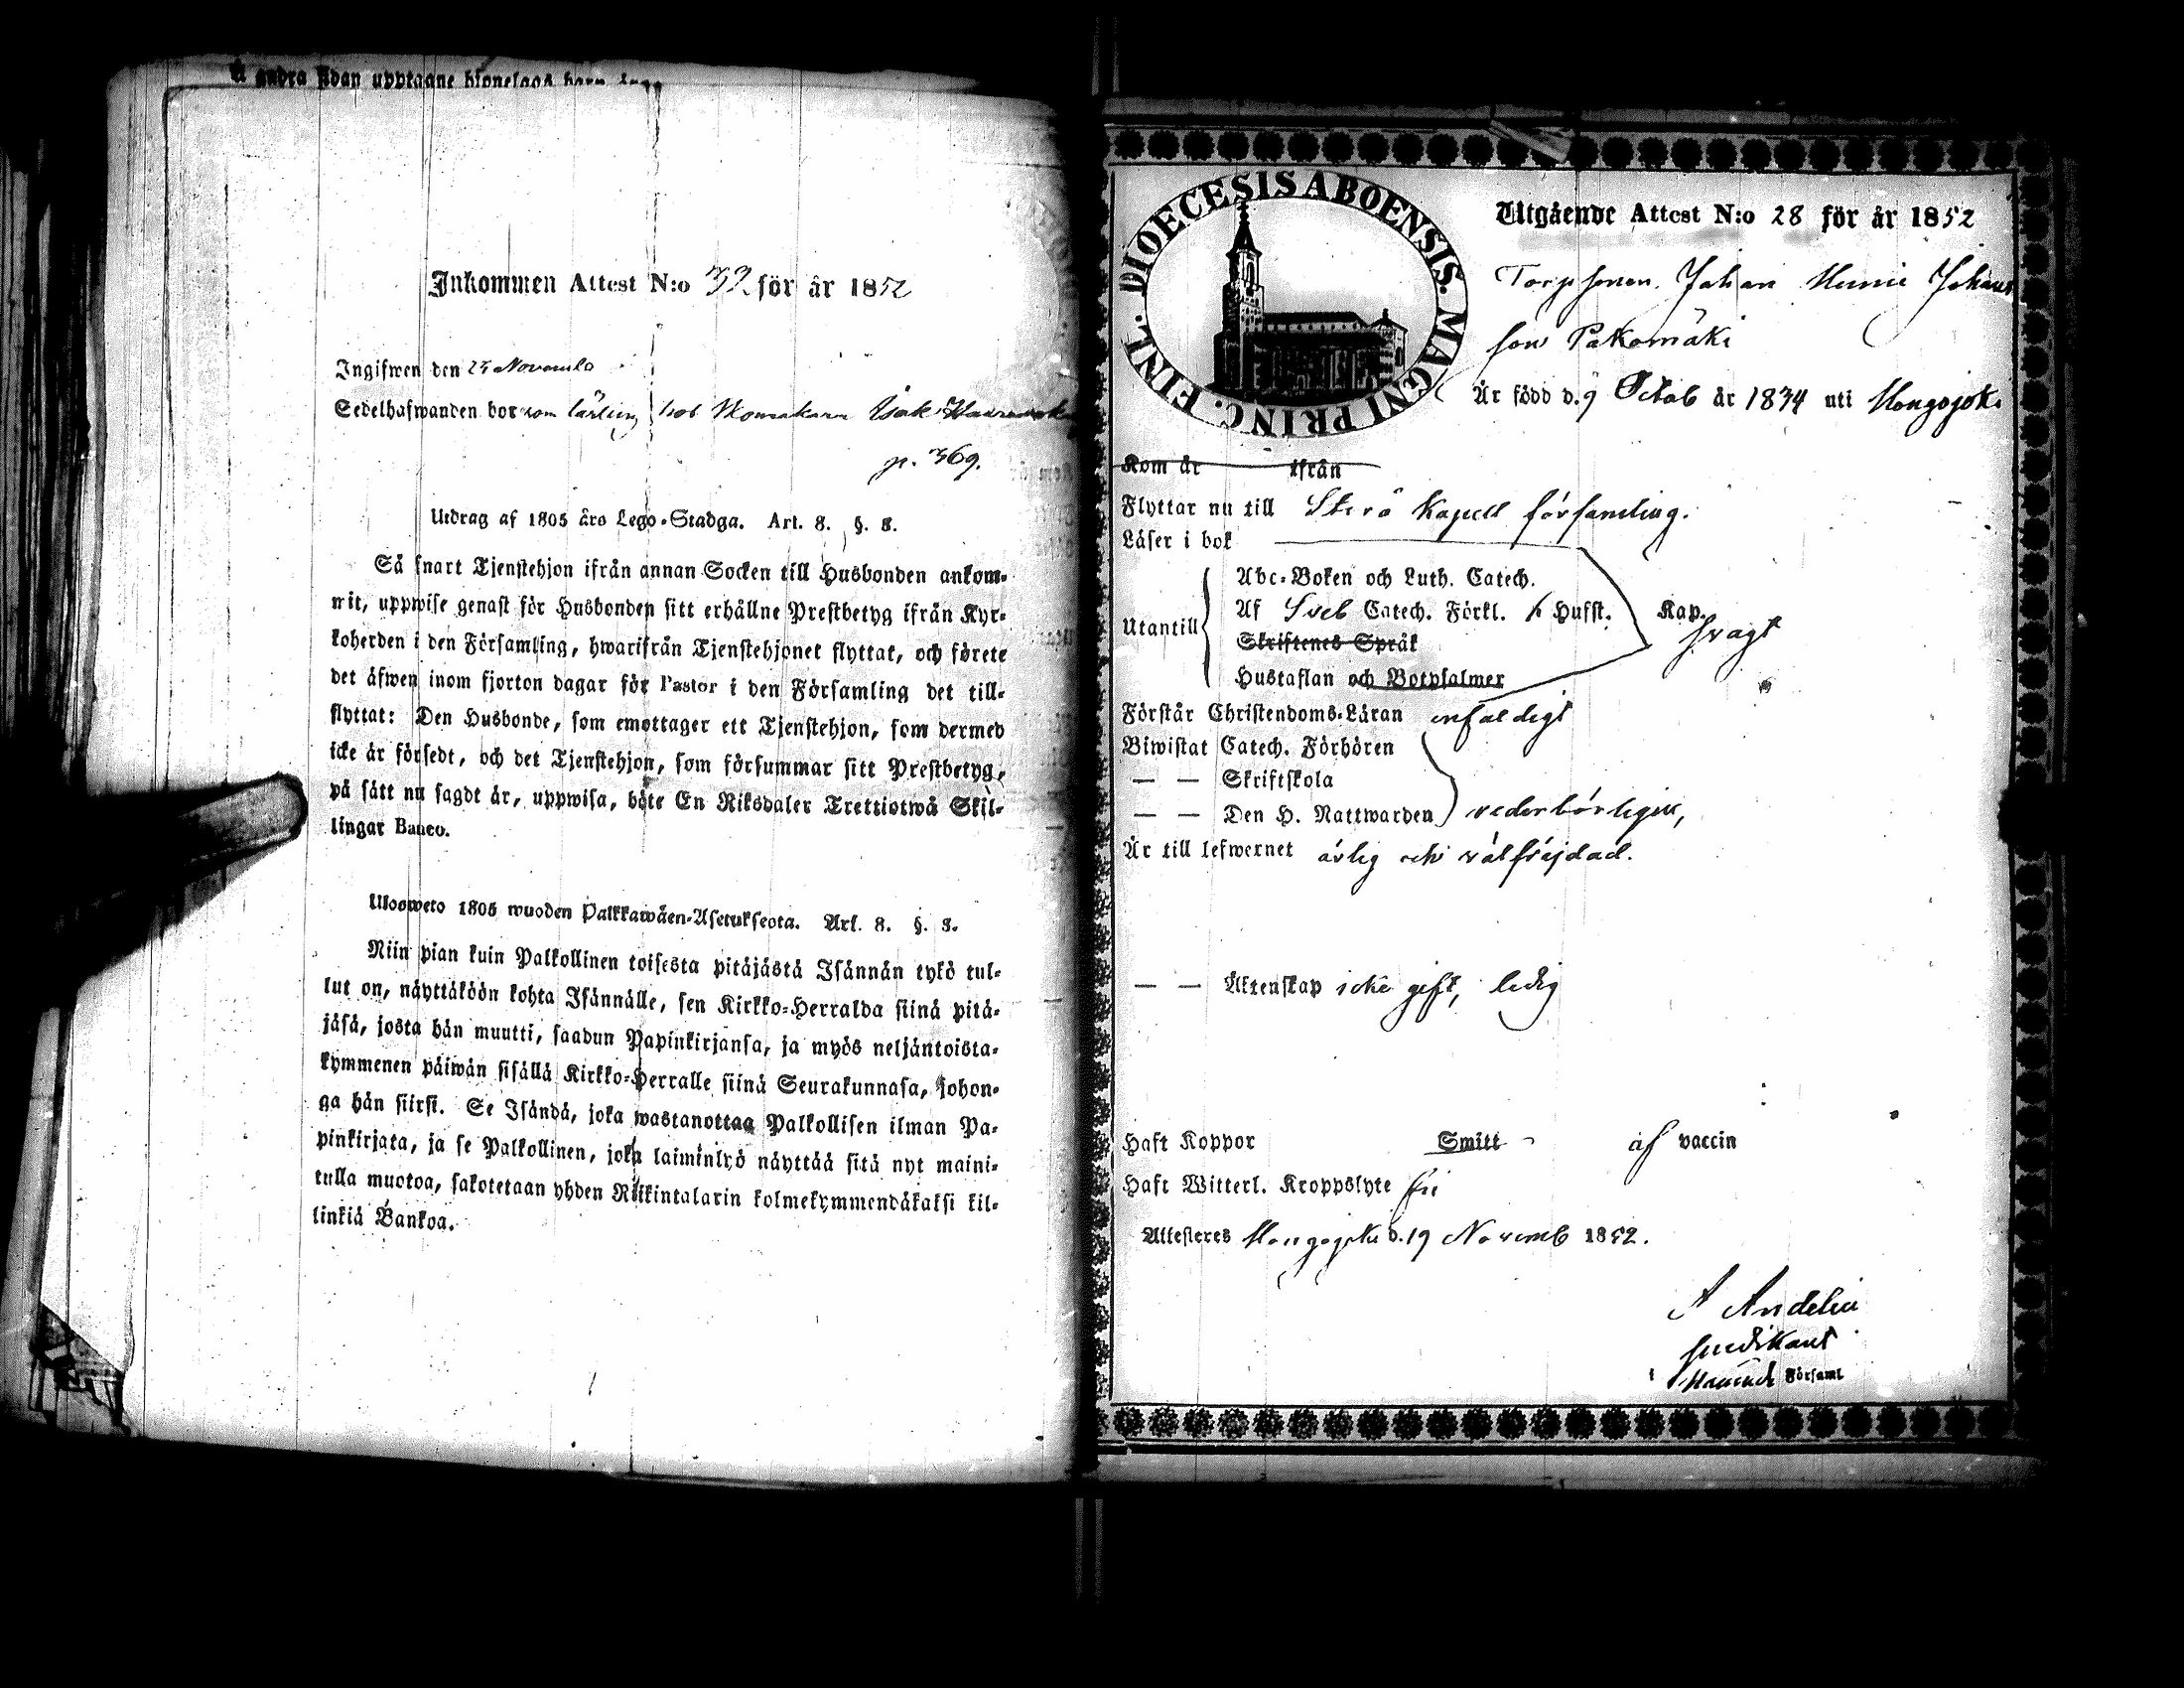 andra sidan upptagne hjonelags barn
Inkommen Attest N:o 32 för år 1852
Ingifwen den 25 Novemb
Sedelhafwanden bor som lärling hos Skomakare Isak
p. 369.
Utdrag af 1805 års Lego-Stadga. Art. 8. §. 8.
Så snart Tjenstehjon ifrån annan Socken till Husbonden ankom-
mit, uppwise genast för Husbonden sitt erhållne Prestbetyg ifrån Kyr-
koherden i den Församling, hwarifrån Tjenstehjonet flyttat, och förete
det äfwen inom fjorton dagar för Pastor i den Församling det till-
flyttat: Den Husbonde, som emottager ett Tjenstehjon, som dermed
icke är försedt, och det Tjenstehjon, som försummar sitt Prestbetyg,
på sätt nu sagdt är, uppwisa, böte En Riksdaler Trettiotwå Skil-
lingar Banco.
Ulosweto 1805 wuoden Palkkawäen-Asetuksesta. Art. 8. §. 8.
Niin pian kuin Palkollinen toisesta pitäjästä Isännän tykö tul-
lut on, näyttäköön kohta Isännälle, sen Kirkko-Herralda siinä pitä-
jäsä, josta hän muutti, saadun Papinkirjansa, ja myös neljäntoista-
kymmenen päiwän sisällä Kirkko-Herralle siinä Seurakunnasa, johon-
ga hän siirsi. Se Isändä, joka wastanottaa Palkollisen ilman Pa-
pinkirjata, ja se Palkollinen, joka laiminlyö näyttää sitä nyt maini-
tulla muotoa, sakotetaan yhden Riikintalarin kolmekymmendäkaksi kil-
linkiä Bankoa.
DIOECESIS ABOENSIS. MAGNI PRINC. FINL.
Utgående Attest N:o 28 för år 1852
Torpsonen Johan Johans
son Pakomäki
Är född d. 9 Octob år 1834 uti Hongojoki
Kom år ifrån
Flyttar nu till Kapell församling.
Läser i bok
Abc-Boken och Luth. Catech.
Utantill Af Sveb Catech. Förkl. 6 Hufst. Kap.
svagt
Skriftenes Språk
Hustaflan och Botpsalmer
Förstår Christendoms-Läran enfaldigt
Biwistat Catech. Förhören
— — Skriftskola
— — Den H. Nattwarden vederbörligen,
Är till lefwernet ärlig och välfrejdad.
— — Äktenskap icke gift, ledig
Haft Koppor Smitt af vaccin
Haft Witterl. Kroppslyte fri
Attesteres Hongojoki d. 19 Novemb 1852.
A Andelin
predikant
i Församl